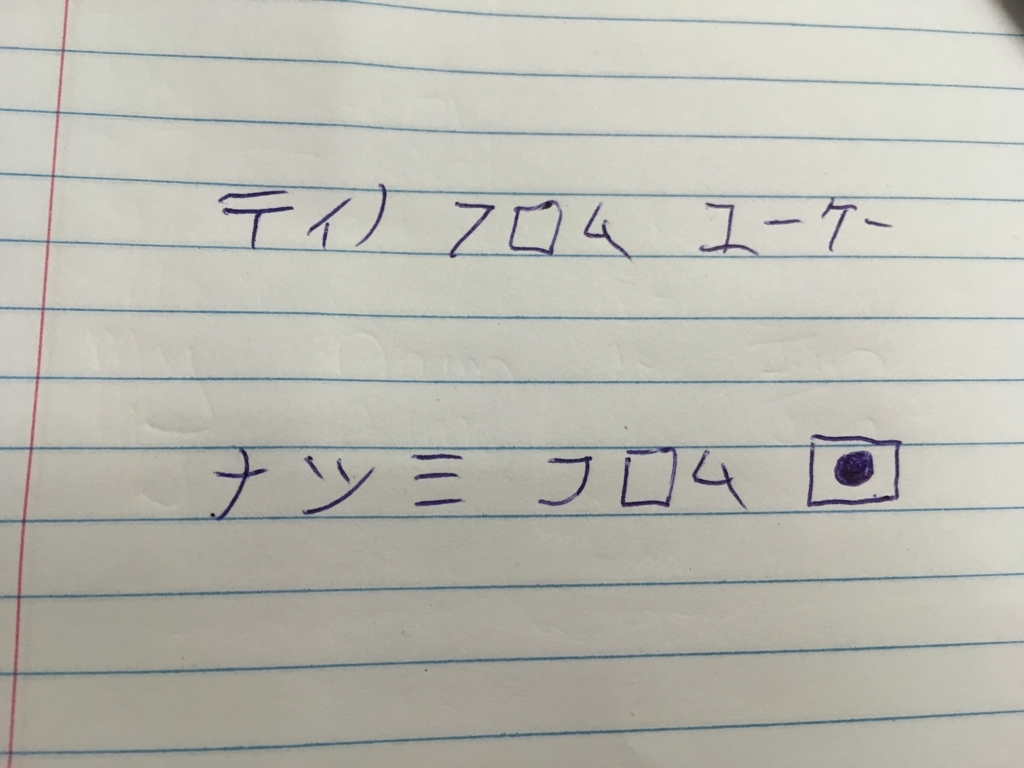 ティノ フロム ユーケー
ナツミ フロム